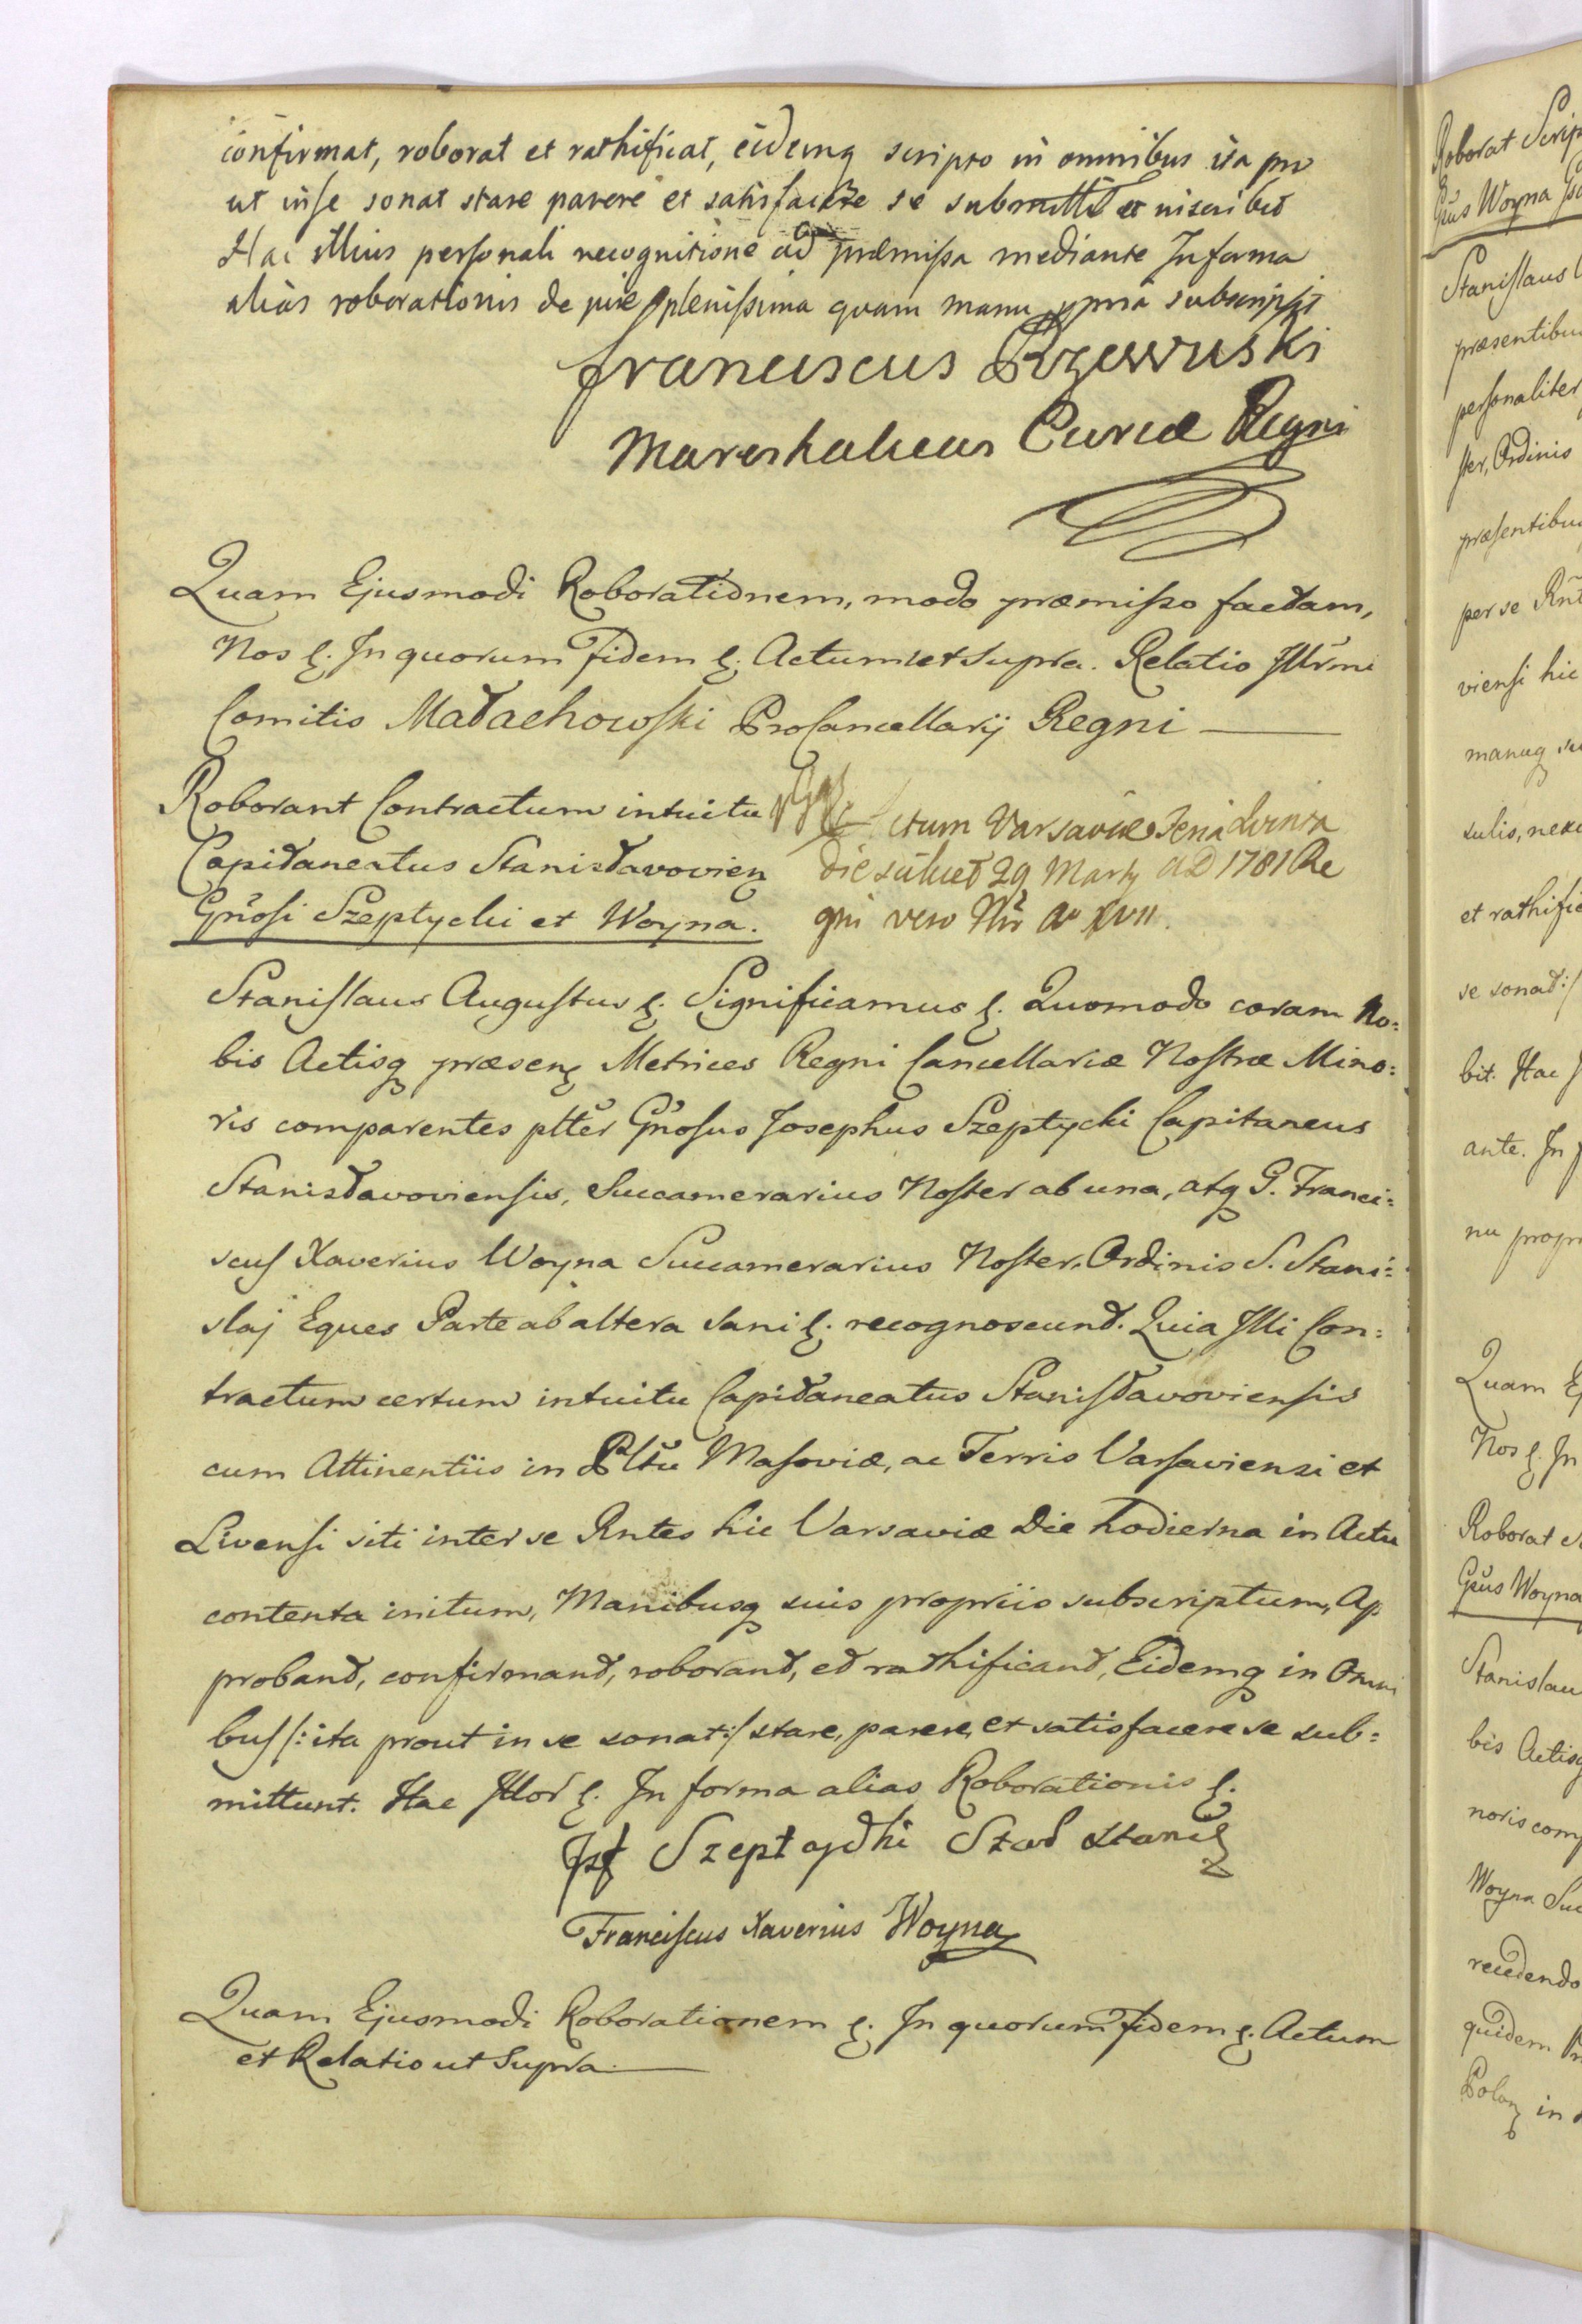 confirmat, roborat et rathificat, eidemq scripto in omnibus ita pro
ut inse sonat stare parere et satisfacere se submittit et inscribit
Hac illius personali recognitione ad præmissa mediante In forma
alias roborationis de jure plenissima quam manu ppria subscripsit
franciscus Rzewuski
Mareschalcus Curiæ Regni
Quam Ejusmodi Roborationem, modo præmisso factam,
Nos ꝛ. In quorum Fidem ꝛ. Actum ut supra. Relatio Illrmi
Comitis Małachowski ProCancellarij Regni
Roborant Contractum intuitu
Capitaneatus Stanisławovien
Gñosi Szeptycki et Woyna.
ctum Varsaviæ Feria Quinta
die silicet 29 Martij AD 1781 Re
gni vero Nri Ao XVII.
Stanislaus Augustus ꝛ. Significamus ꝛ. Quomodo coram No:
bis Actisq præsen Metrices Regni Cancellariæ Nostræ Mino:
ris comparentes plter Gñosus Josephus Szeptycki Capitaneus
Stanisławoviensis, Succamerarius Noster ab una, atq G. Franci:
scus Xaverius Woyna Succamerarius Noster, Ordinis S. Stani:
slaj Eques Parte ab altera sani ꝛ. recognoscunt. Quia Illi Con:
tractum certum intuitu Capitaneatus Stanisławoviensis
cum Attinentiis in Pltu Masoviæ, ac Terris Varsaviensi et
Livensi siti inter se Rntes hic Varsaviæ Die hodierna in Actu
contenta initum, Manibusq suis propriis subscriptum, Ap
probant, confirmant, roborant, et rathificant, Eidemq in Omni
bus /: ita prout in se sonat :/ stare, parere, et satisfacere se sub:
mittunt. Hac Illor ꝛ. In forma alias Roborationis ꝛ.
Jzf Szeptycki Stad Stanis
Franciscus Xaverius Woyna
Quam Ejusmodi Roborationem ꝛ. In quorum Fidem ꝛ. Actum
et Relatio ut Supra.
Roborat Scrip
Gñus Woyna
Stanislaus
præsentibu
personaliter
ster, Ordinis
præsentibu
per se Rnt
viensi hic
manuq su
sulis, nexu
et rathific
se sonat :/
bit. Hac
ante. In
nu propri
Quam E
Nos ꝛ. In
Roborat
Gñus Woyna
Stanislau
bis Actisq
noris comp
Woyna Suc
recedendo
quidem
Polon in